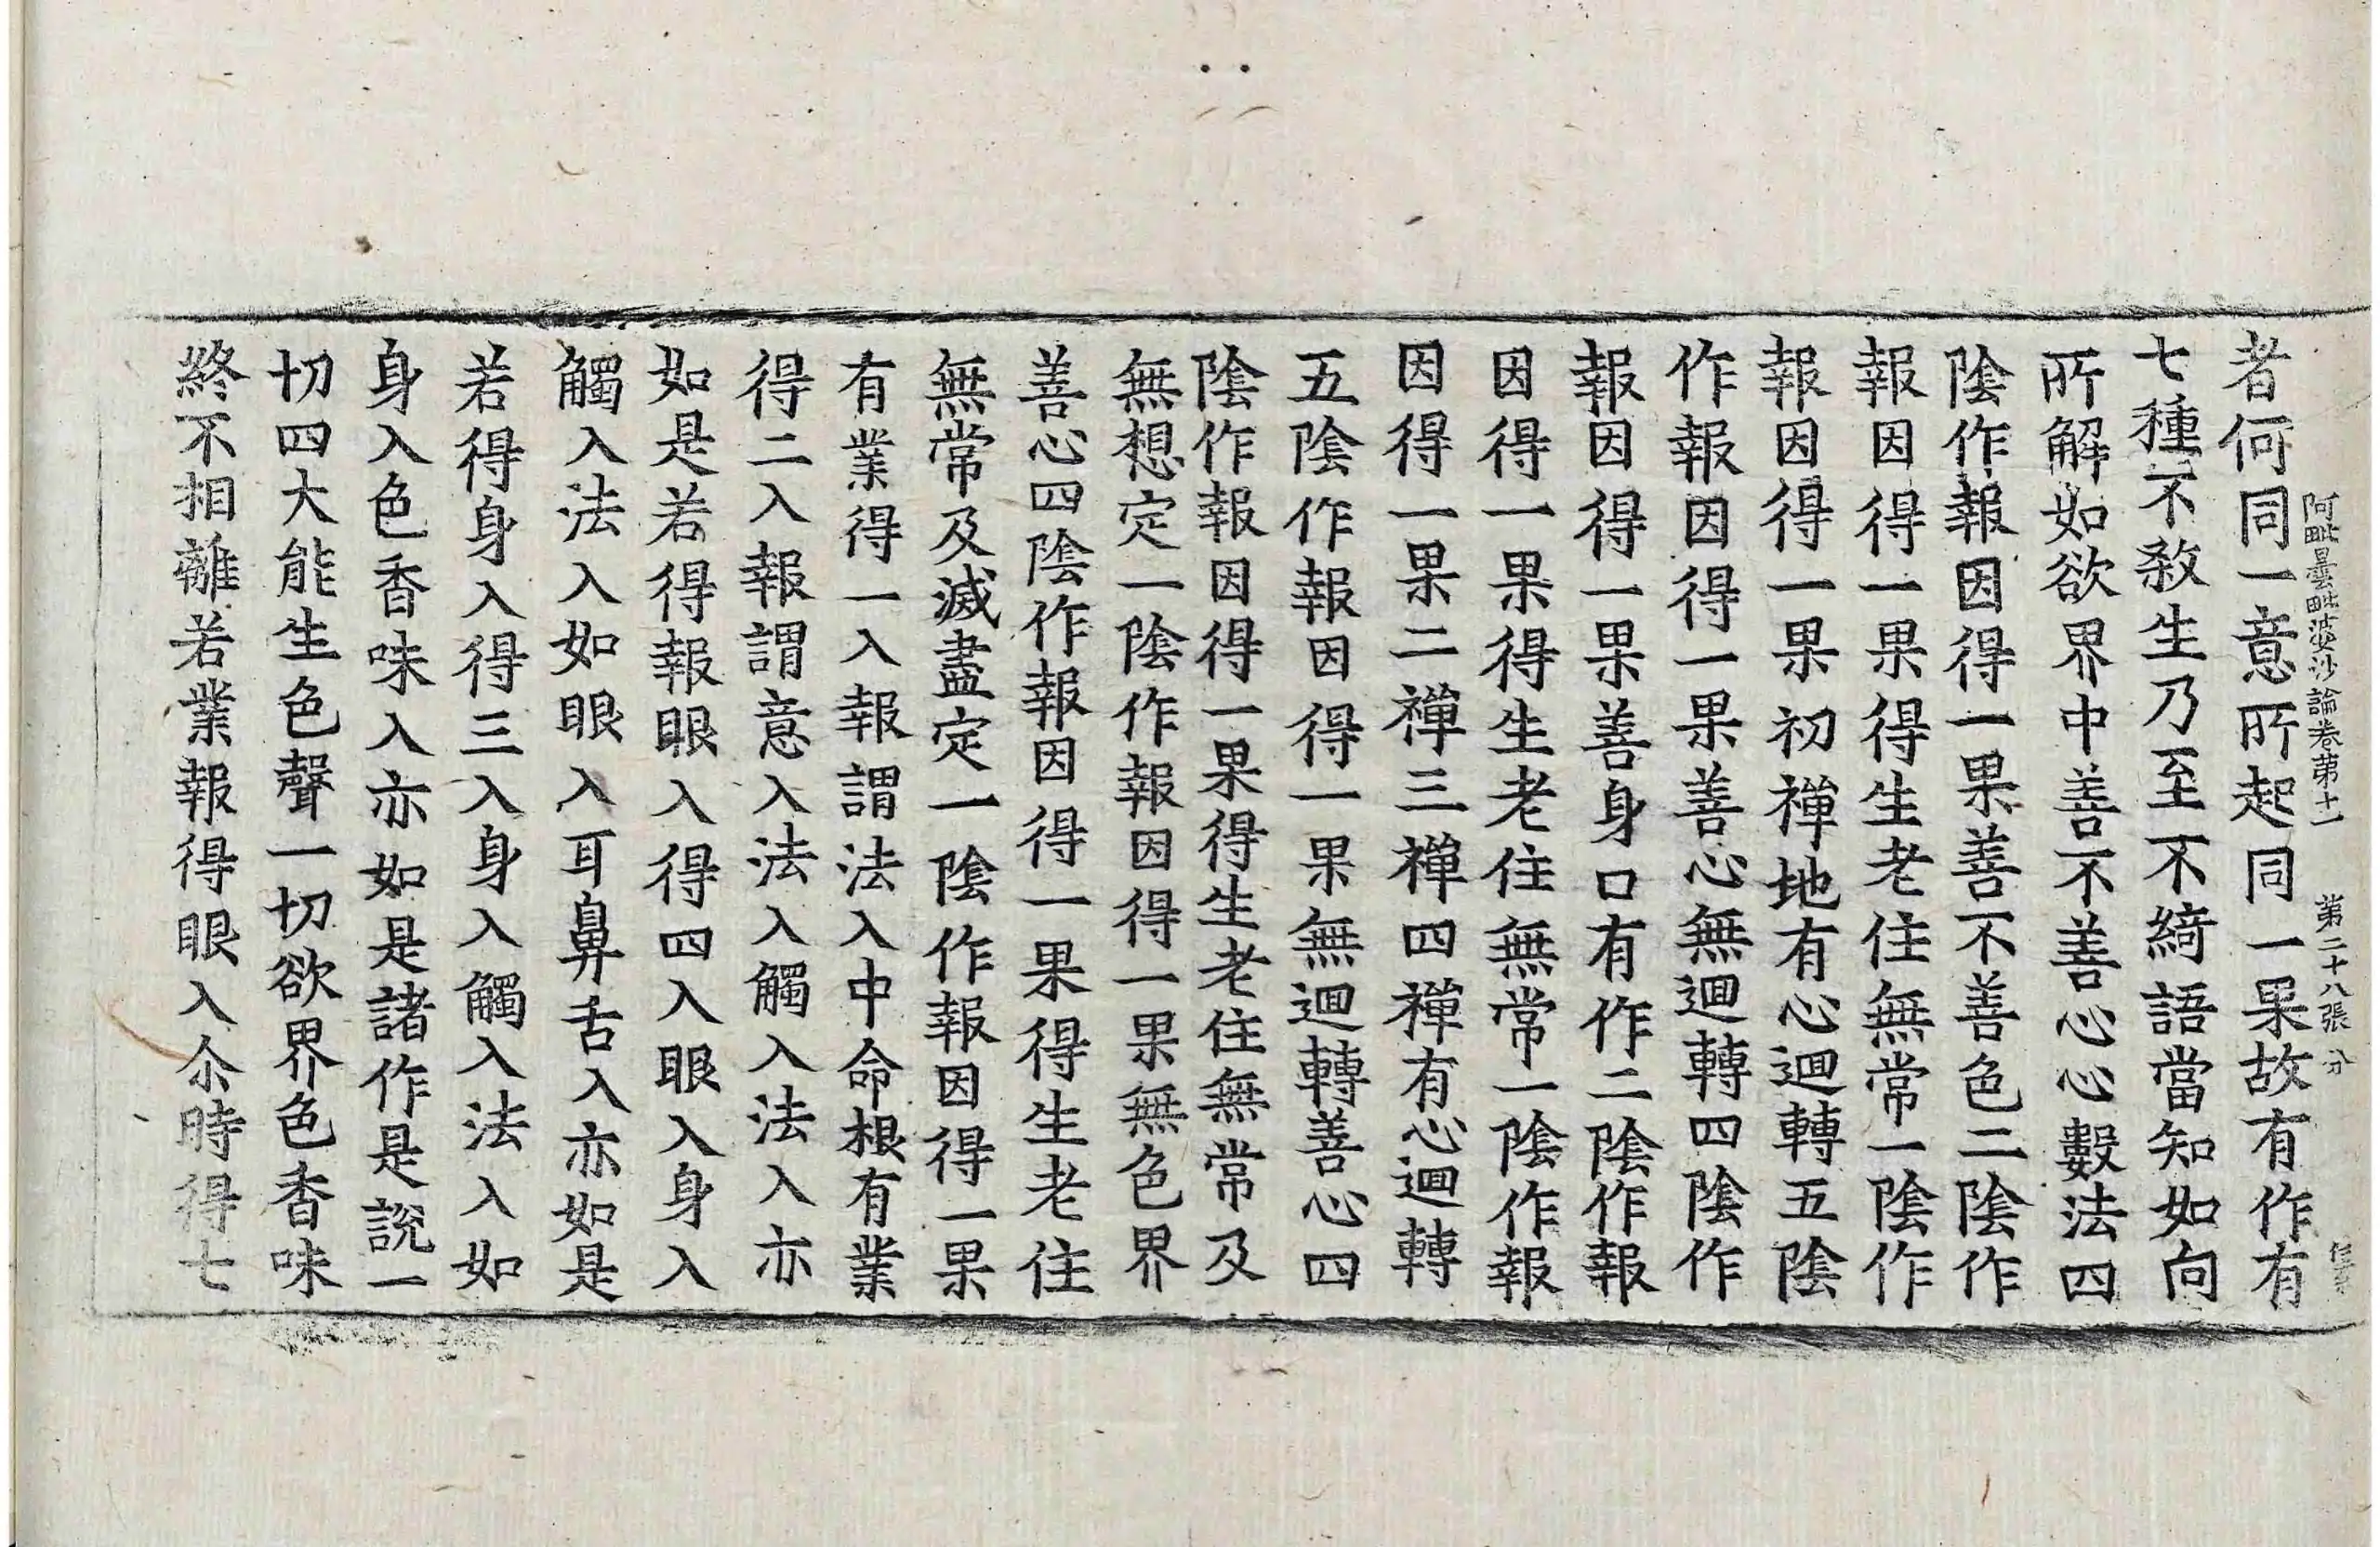 阿毗曇毗婆沙論卷第十一　第二十八張　分
者何同一意所起同一果故有作有
七種不殺生乃至不綺語當知如向
所解如欲界中善不善心心數法四
陰作報因得一果善不善色二陰作
報因得一果得生老住無常一陰作
報因得一果初禪地有心迴轉五陰
作報因得一果善心無迴轉四陰作
報因得一果善身口有作二陰作報
因得一果得生老住無常一陰作報
因得一果二禪三禪四禪有心迴轉
五陰作報因得一果無迴轉善心四
陰作報因得一果得生老住無常及
無想定一陰作報因得一果無色界
善心四陰作報因得一果得生老住
無常及滅盡定一陰作報因得一果
有業得一入報謂法入中命根有業
得二入報謂意入法入觸入法入亦
如是若得報眼入得四入眼入身入
觸入法入如眼入耳鼻舌入亦如是
若得身入得三入身入觸入法入如
身入色香味入亦如是諸作是說一
切四大能生色聲一切欲界色香味
終不相離若業報得眼入尒時得七